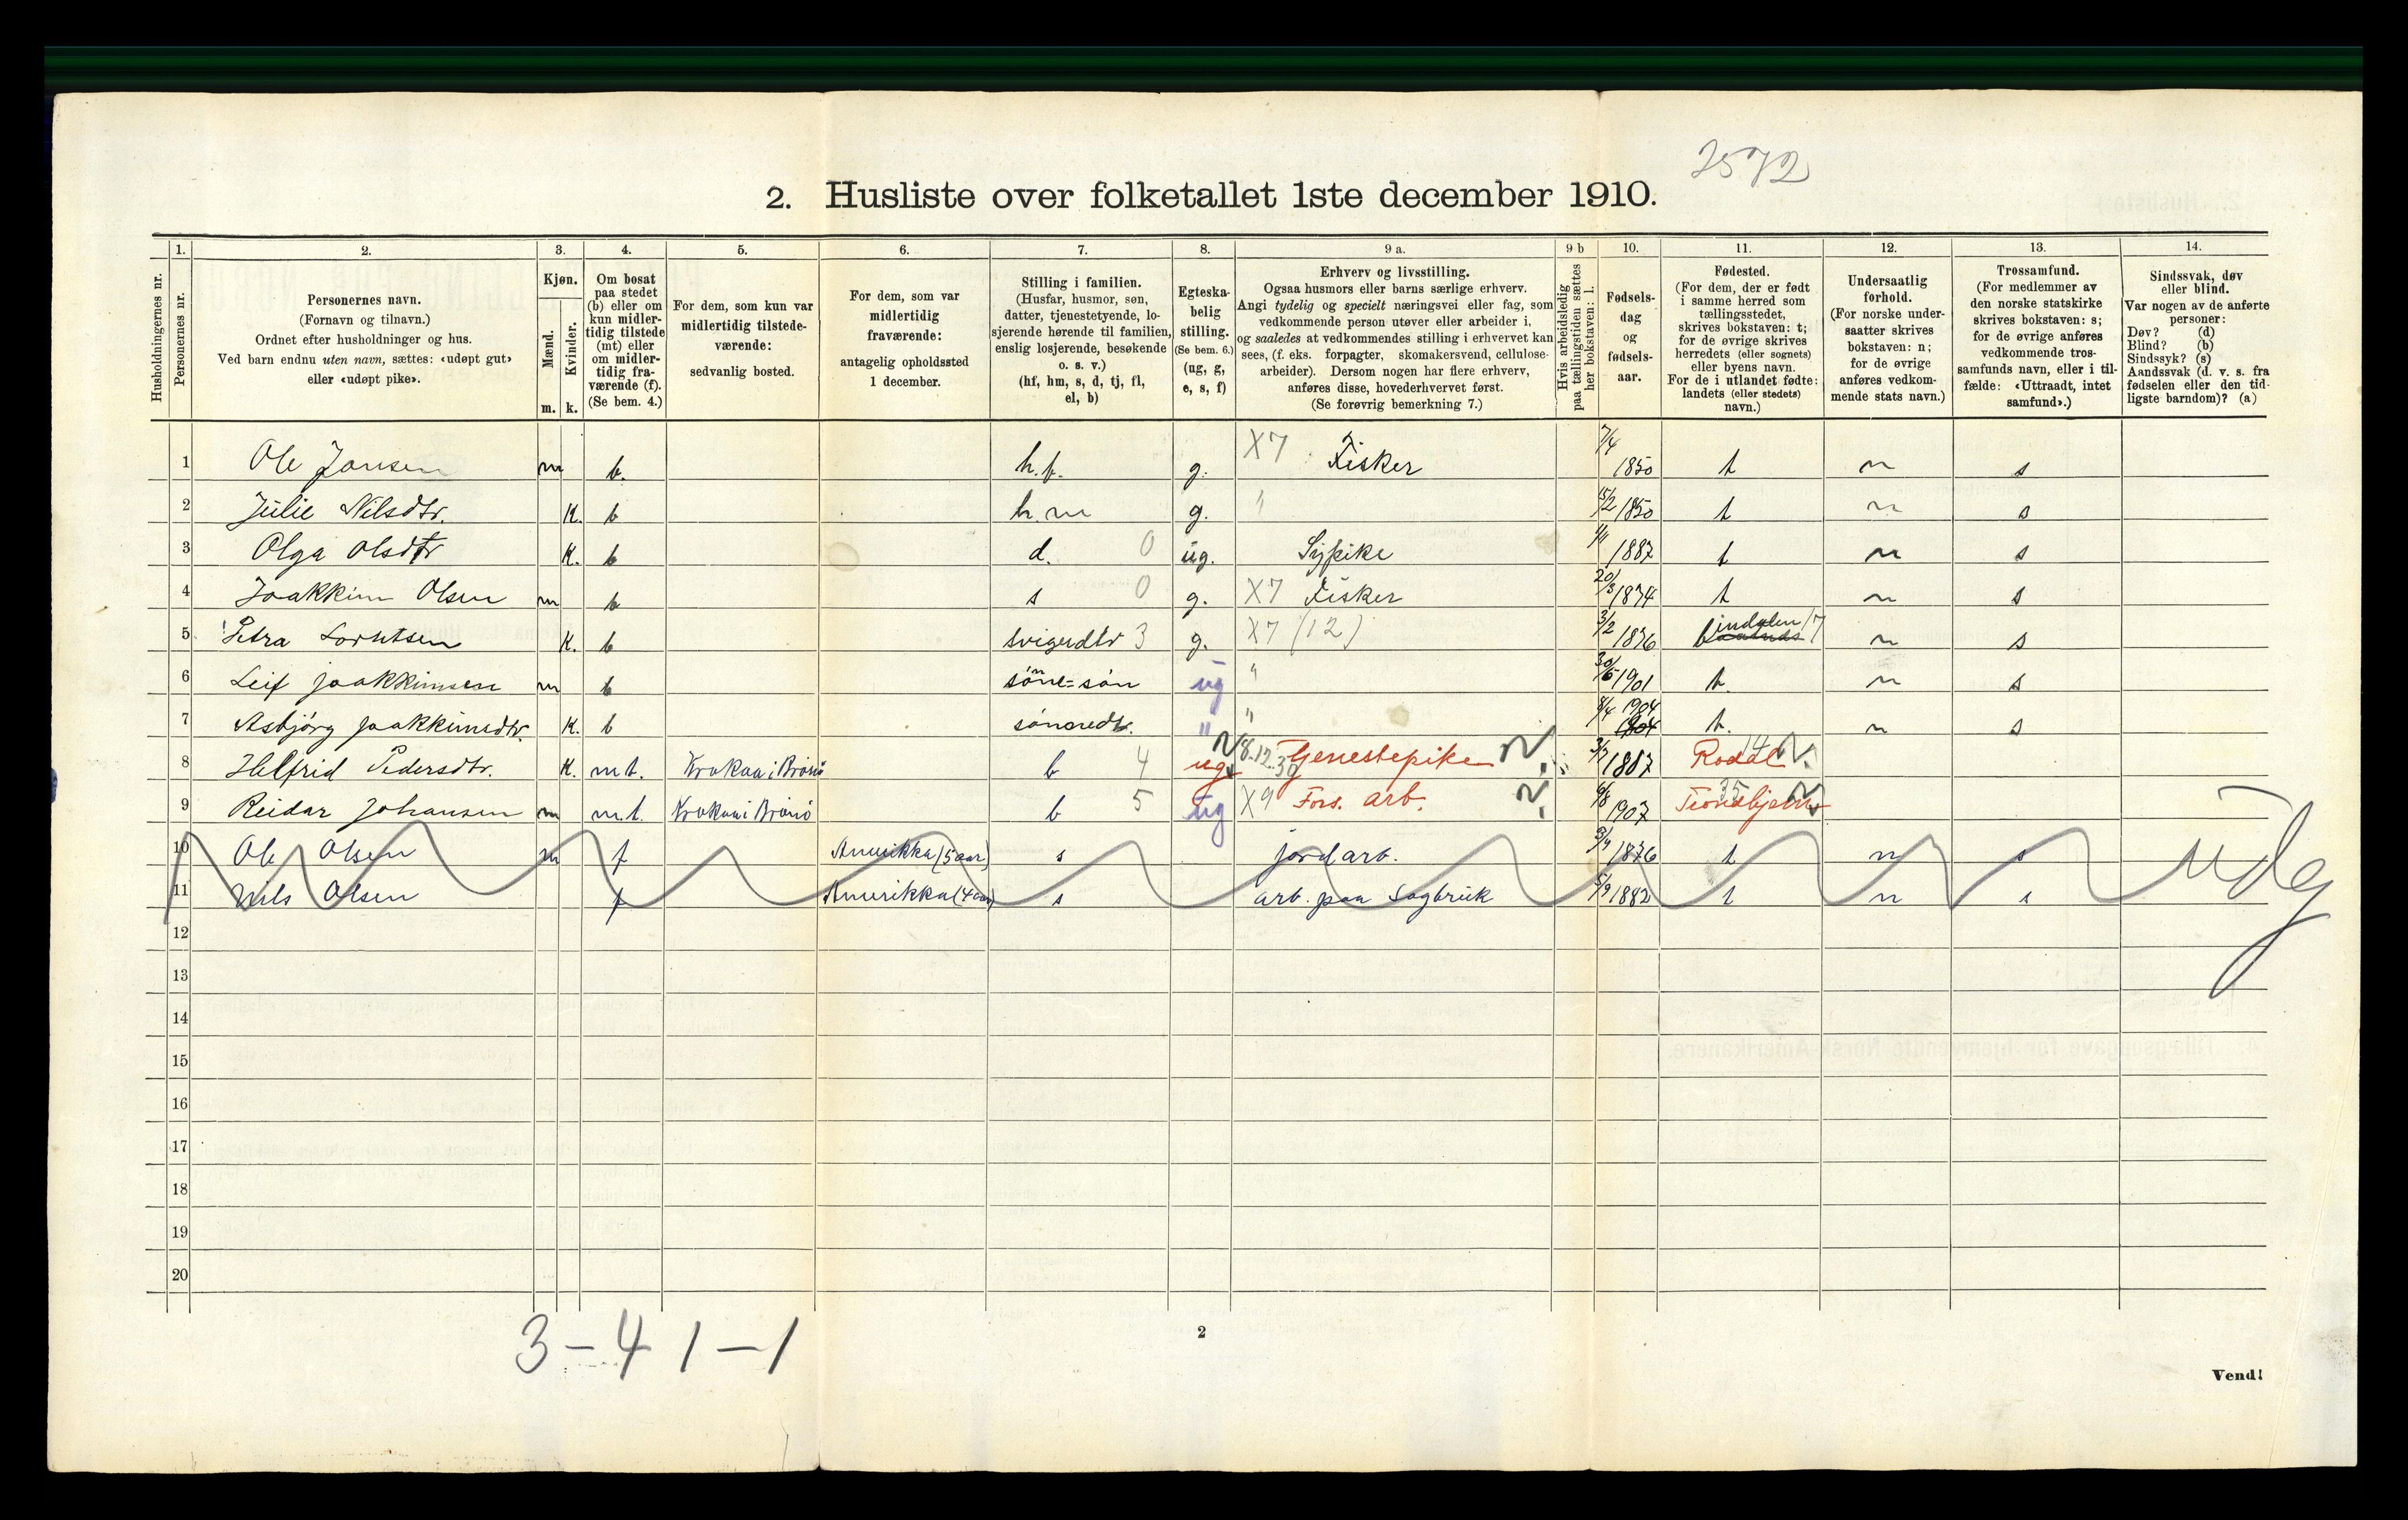 2572
2. Husliste over folketallet 1ste december 1910.
Husholdningernes nr.
1. Personernes nr.
2. Personernes navn.
(Fornavn og tilnavn.)
Ordnet efter husholdninger og hus.
Ved barn endnu uten navn, sættes: «udøpt gut»
eller «udøpt pike».
3. Kjøn.
Mænd. Kvinder.
m. k.
4. Om bosat
paa stedet
(b) eller om
kun midler-
tidig tilstede
(mt) eller
om midler-
tidig fra-
værende (f).
(Se bem. 4.)
5. For dem, som kun var
midlertidig tilstede-
værende:
sedvanlig bosted.
6. For dem, som var
midlertidig
fraværende:
antagelig opholdssted
1 december.
7. Stilling i familien.
(Husfar, husmor, søn,
datter, tjenestetyende, lo-
sjerende hørende til familien,
enslig losjerende, besøkende
o. s. v.)
(hf, hm, s, d, tj, fl,
el, b)
8. Egteska-
belig
stilling.
(Se bem. 6.)
(ug, g,
e, s, f)
9 a. Erhverv og livsstilling.
Ogsaa husmors eller barns særlige erhverv.
Angi tydelig og specielt næringsvei eller fag, som
vedkommende person utøver eller arbeider i,
og saaledes at vedkommendes stilling i erhvervet kan
sees, (f. eks. forpagter, skomakersvend, cellulose-
arbeider). Dersom nogen har flere erhverv,
anføres disse, hovederhvervet først.
(Se forøvrig bemerkning 7.)
9 b Hvis arbeidsledig
paa tællingstiden sættes
her bokstaven: l.
10. Fødsels-
dag
og
fødsels-
aar.
11. Fødested.
(For dem, der er født
i samme herred som
tællingsstedet,
skrives bokstaven: t;
for de øvrige skrives
herredets (eller sognets)
eller byens navn.
For de i utlandet fødte:
landets (eller stedets)
navn.)
12. Undersaatlig
forhold.
(For norske under-
saatter skrives
bokstaven: n;
for de øvrige
anføres vedkom-
mende stats navn.)
13. Trossamfund.
(For medlemmer av
den norske statskirke
skrives bokstaven: s;
for de øvrige anføres
vedkommende tros-
samfunds navn, eller i til-
fælde: «Uttraadt, intet
samfund».)
14. Sindssvak, døv
eller blind.
Var nogen av de anførte
personer:
Døv? (d)
Blind? (b)
Sindssyk? (s)
Aandssvak (d. v. s. fra
fødselen eller den tid-
ligste barndom)? (a)
1 Ole Jansen m b. h.f. g. X7 Fisker 7/4 1850 t n s
2 Julie Nilsdtr. K. b h.m g. " 15/2 1850 t n s
3 Olga Olsdtr K. b d. 0 ug. Sypike 1887 t n s
4 Joakkim Olsen m b s 0 g. X7 Fisker 20/3 1874 t n s
5 Petra Lorntsen K. b svigerdtr 3 g. X7 (12) 3/2 1876 bindalen 17 n s
6 Leif Joakkimsen m b sönne=sön ug " 30/5 1901 t. n s
7 Asbjörg Joakkimsdtr. K. b sönnedtr. " " 8/4 1904 t. n s
8 Helfrid Pedersdtr. K. m t. Krokaa i Brönö b 4 ug 8.12.30 Tjenestepike 3/7 1887 Rodal 14
9 Reidar Johansen m m.t. Krokaa i Brönö b 5 ug X9 Fors. arb. 6/8 1907 Trondhjem 35
10 Ole Olsen m f Amerikka (5 aar) s jordarb. 3/9 1876 t n s
11 Nils Olsen f Amerikka (4 aar) s arb. paa Sagbruk 5/9 1882 t n s
udg
12
13
14
15
16
17
18
19
20
3 – 4 1 – 1
2
Vend!